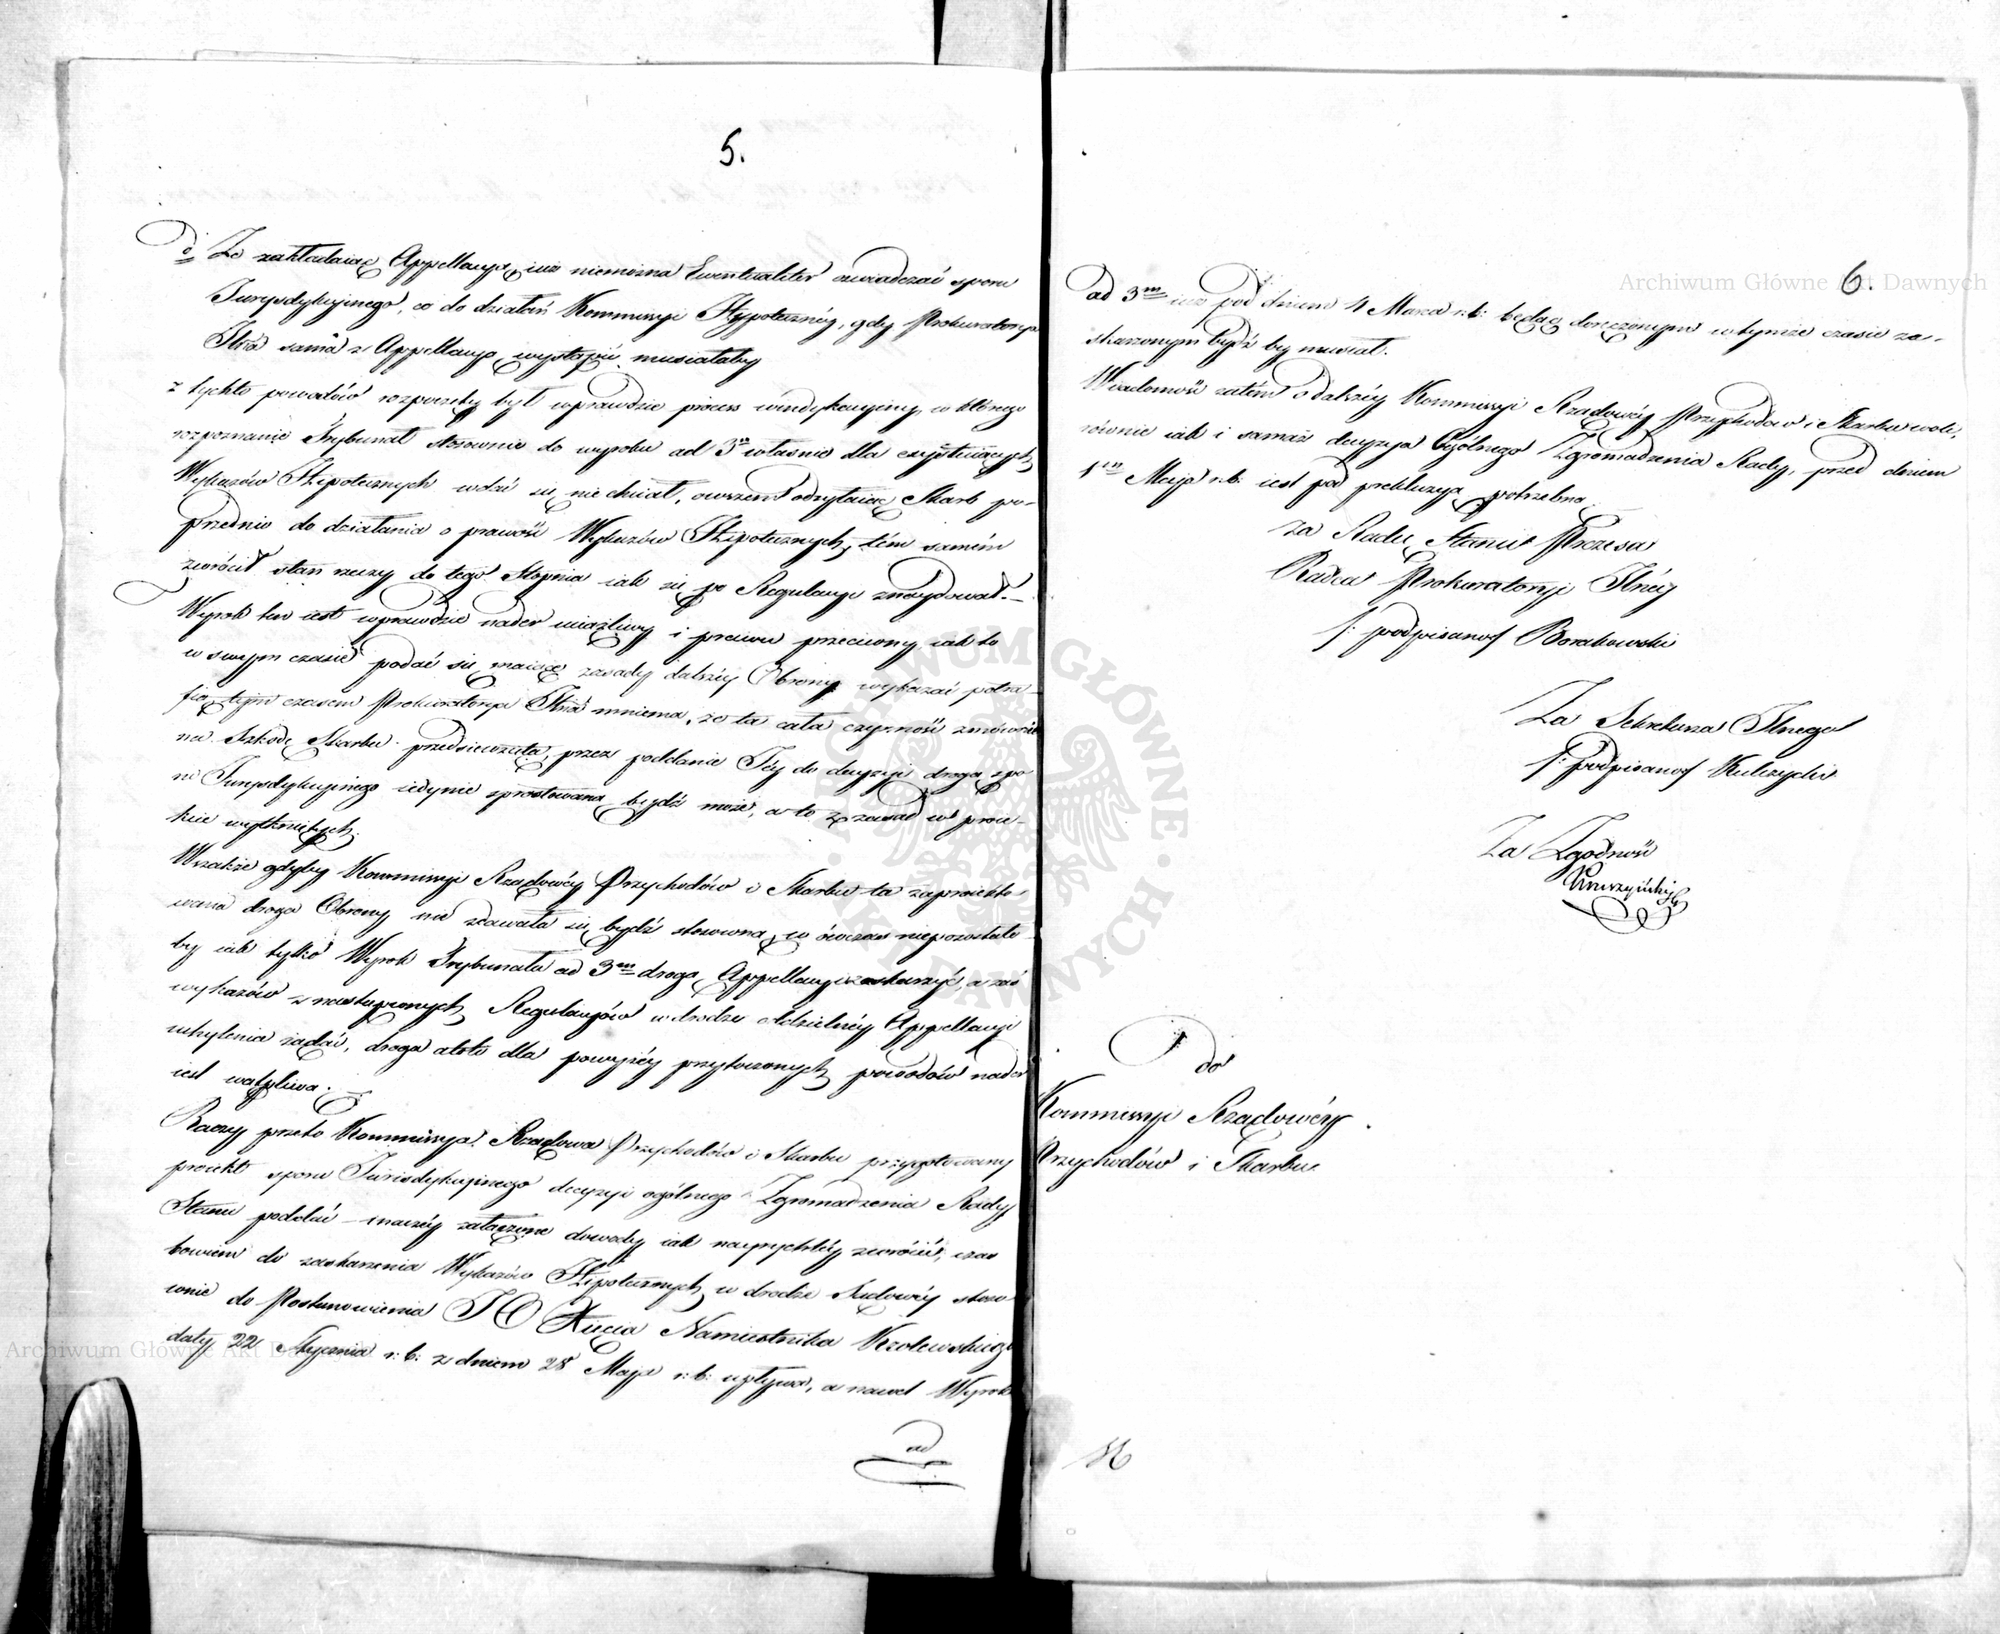 5.
d. Ze zakładaiąc Appellacyą iuż niemożna Ewentualiter oświadczać sporu
Jurysdykcyjnego, co do działań Kommissyi Hypoteczney, gdy Prokuratorya
Jlna sama z Appellacyą wystąpić musiałaby
z tychto powodów rozpoczęty był wprawdzie process windykacyiny, w którego
rozpoznanie Trybunał stosownie do wyroku ad 3m własnie dla exystuiących
Wykazów Hipotecznych wdać się nie chciał, owszem odsyłaiąc Skarb po-
przednio do działania o prawość Wykazów Hipotecznych, tém samém
zwrócił stan rzeczy do tego Stopnia iak się po Regulacyi znaydował.
Wyrok ten iest wprawdzie nader uciążliwy i prawu przeciwny iak to
w swym czasie podać się maiące zasady dalszéy Obrony wykazać potra-
fią, tym czasem Prokuratorya Jlna mniema, że ta cała czynność
na Szkodę Skarbu przedsięwzięta, przez poddanie Jéy do decyzyi drogą spo-
ru Jurysdykcyinego iedynie sprostowaną bydź może, a to z zasad w proie-
kcie wytkniętych.
Wszakże gdyby Kommissyi Rządowéy Przychodów i Skarbu ta zaproiekto-
wana droga Obrony nie zdawała się bydź stosowną, w ówczas niepozostało
by iak tylko Wyrok Trybunału ad 3m drogą Appellacyi zaskarżyć, a zaś
wykazów z nastąpionych Regulacyów w drodze oddzielnéy Appellacyi
uchylenia żądać, droga atoli dla powyżéy przytoczonych powodów nader
iest wątpliwa.
Raczy przeto Kommissya Rządowa Przychodów i Skarbu przygotowany
proiekt sporu Jurisdykcyinego decyzyi ogólnego Zgromadzenia Rady
Stanu poddać – inaczéy załączone dowody iak nayrychléy zwrócić, czas
bowiem do zaskarżenia Wykazów Hipotecznych w drodze Sądowéy stoso-
wnie do Postanowienia JO Xięcia Namiestnika Królewskiego
daty 22 Stycznia r: b: z dniem 28 Maja r: b: upływa, a nawet Wyrok
ad
6.
ad 3m iuż pod dniem 4 Marca r: b: będąc doręczonym w tymże czasie za-
skarżonym bydź by musiał.
Wiadomość zatém o dalszéy Kommissyi Rządowéy Przychodów i Skarbu woli,
równie iak i samaż decyzya Ogólnego Zgromadzenia Rady, przed dniem
1m Maja r: b: iest pod prekluzyą potrzebna
za Radcę Stanu Prezesa
Radca Prokuratoryi Jlnéy
/: podpisano/ Borakowski
Za Sekretarza Jlnego
/: podpisano/ Kulczycki
Za Zgodność
do
Kommissyi Rządowéy
Przychodów i Skarbu
Archiwum Główne Akt Dawnych
Archiwum Główne Akt Dawnych
ARCHIWUM GŁÓWNE AKT DAWNYCH